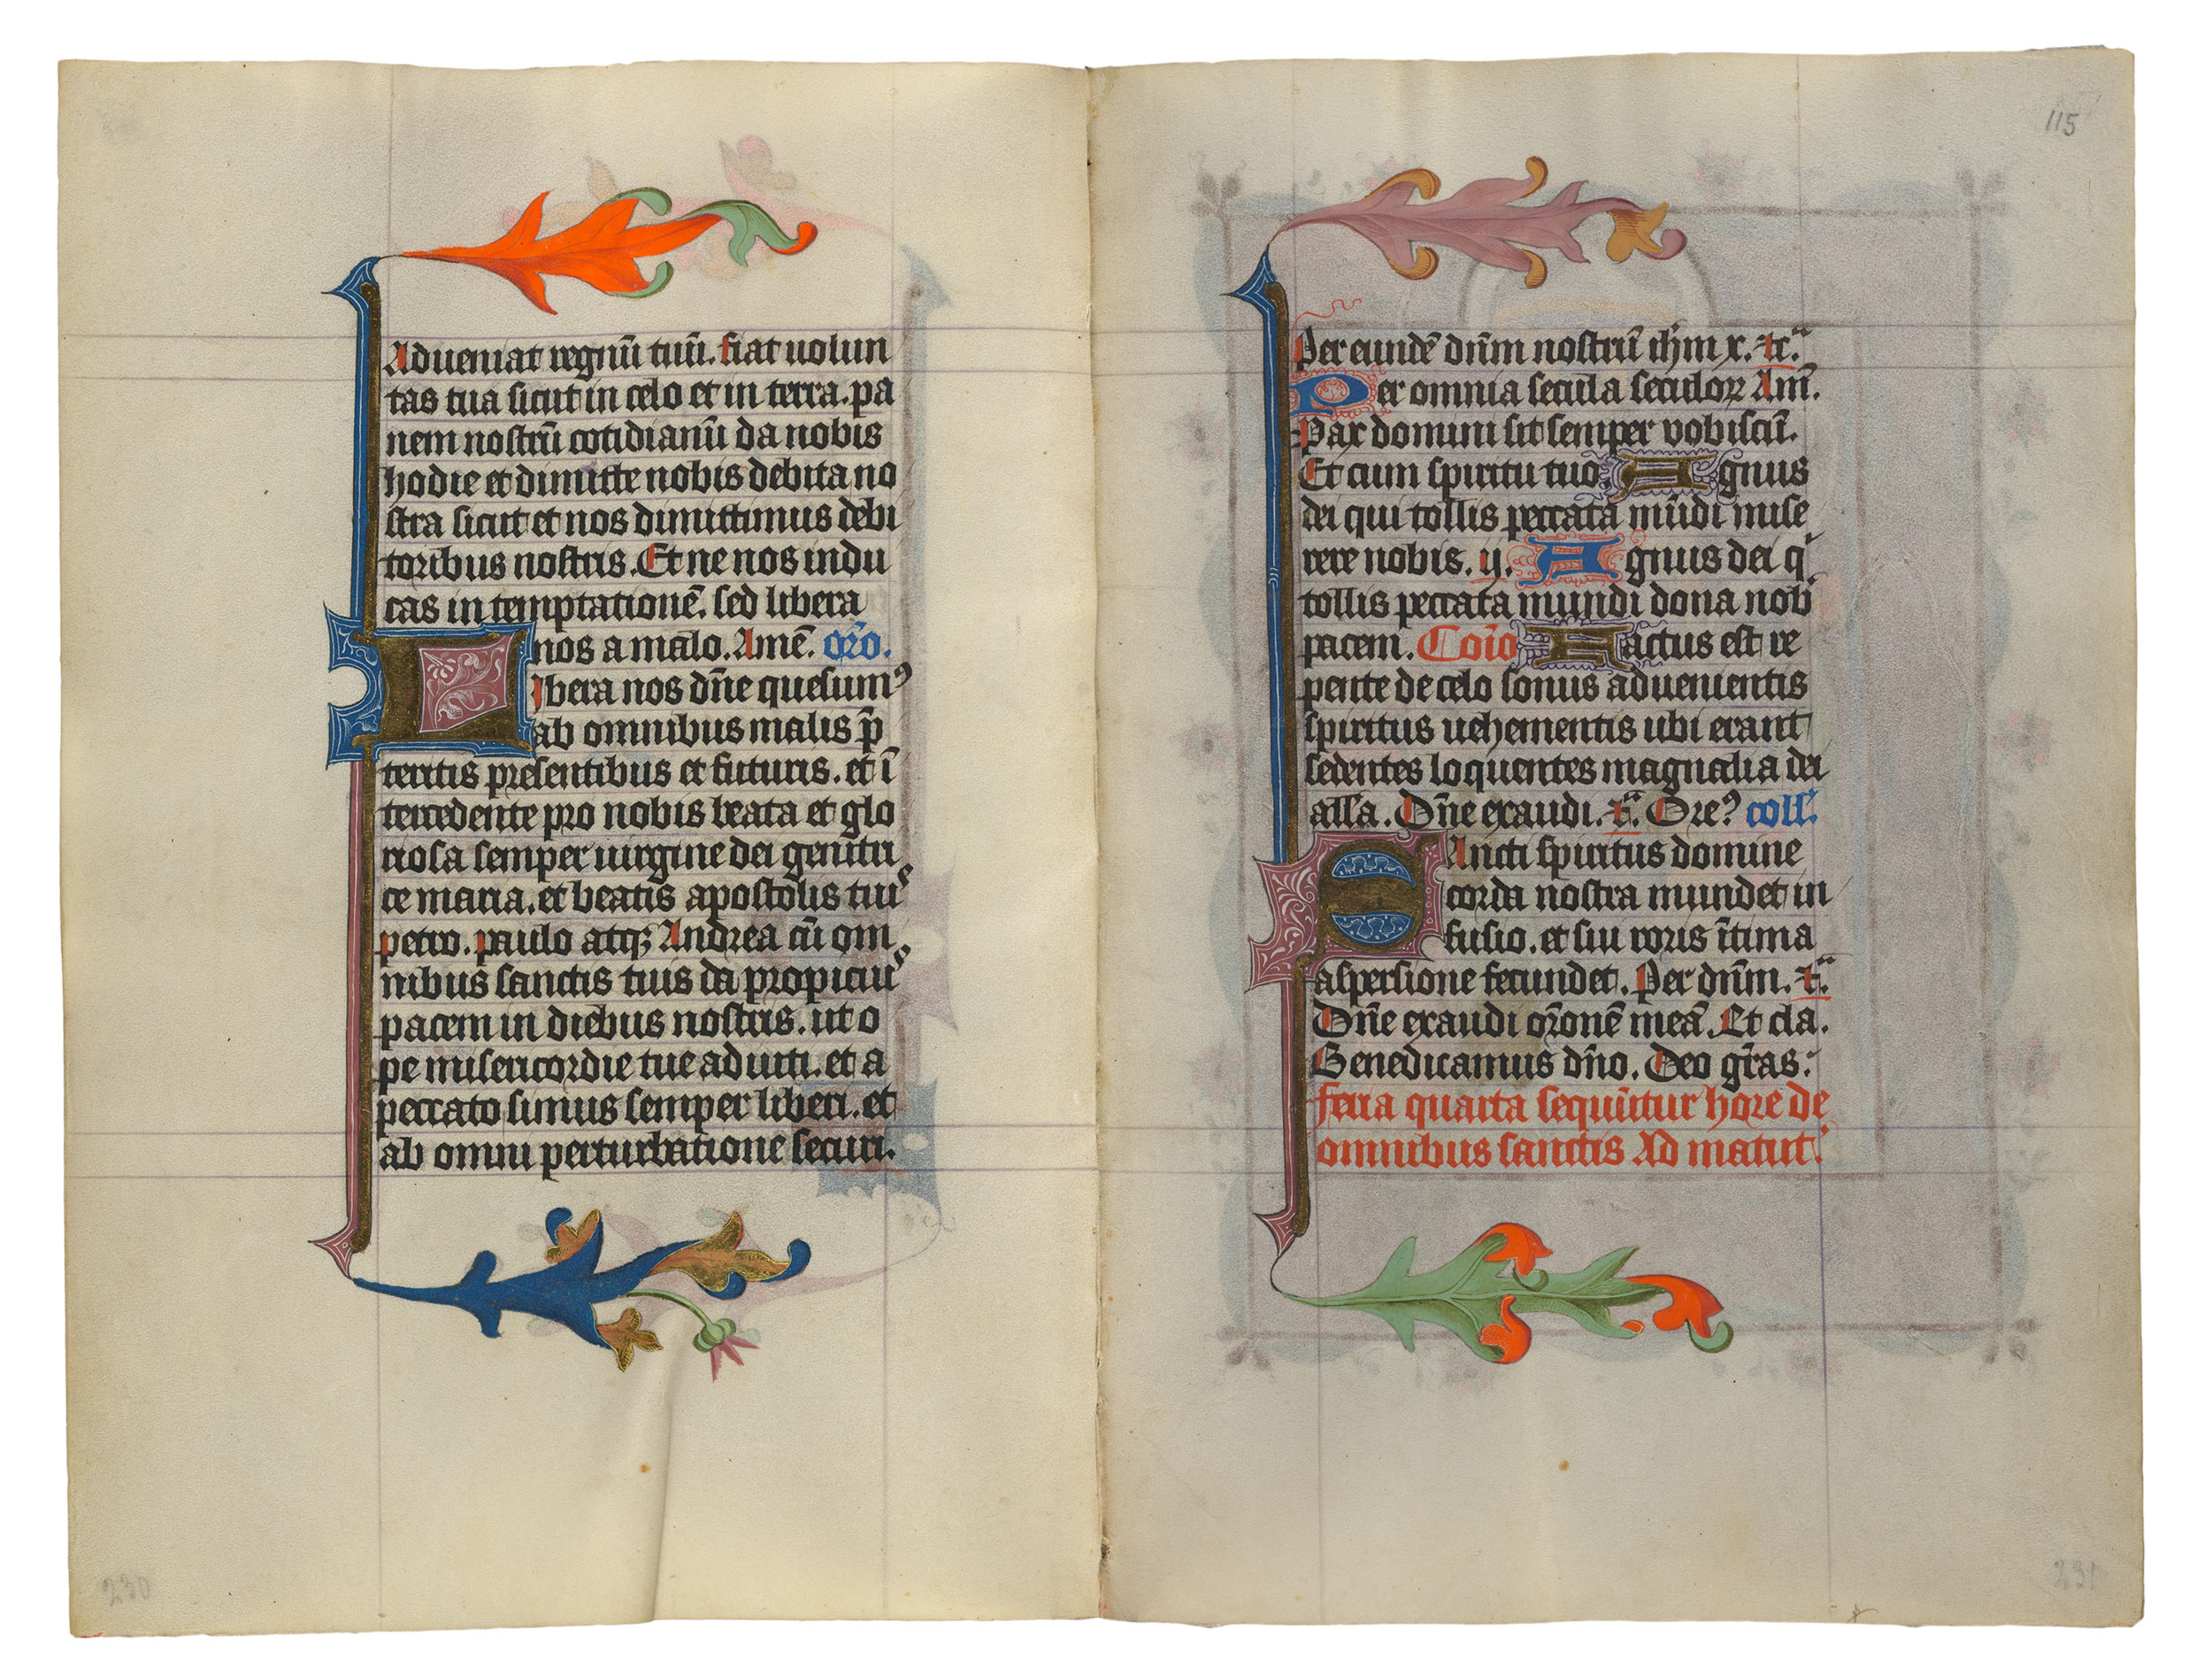 Adueniat regnū tuū. fiat uolun
tas tua sicut in celo et in terra. pa
nem nostrū cotidianū da nobis
hodie et dimitte nobis debita no
stra sicut et nos dimittimus debi
toribus nostris. Et ne nos indu
cas in temptationē. sed libera
nos a malo. Amē. or̄o.
Libera nos dn̄e quesumꝰ
ab omnibus malis p̄
teritis presentibus et futuris. et ī
tercedente pro nobis beata et glo
riosa semper uirgine dei genitri
ce maria. et beatis apostolis tuis
petro. paulo atqꝫ Andrea cū om
nibus sanctis tuis da propicius
pacem in diebus nostris. ut o
pe misericordie tue adiuti. et a
peccato simus semper liberi. et
ab omni perturbatione securi.
230
115
Per eundē dn̄m nostrū ih̄m x. ⁊c.
Per omnia secula seculoꝝ Am̄.
Pax domini sit semper vobiscū.
Et cum spiritu tuo. Agnus
dei qui tollis peccata mūdi mise
rere nobis. ij. Agnus dei q
tollis peccata mundi dona nob
pacem. Cōīo Factus est re
pente de celo sonus aduenientis
spiritus uehementis ubi erant
sedentes loquentes magnalia dei
all'a. Dn̄e exaudi. Oreꝰ coll'.
SAncti spiritus domine
corda nostra mundet in
fusio. et sui roris ītima
aspersione fecundet. Per dn̄m.
Dn̄e exaudi or̄onē meā. Et cla.
Benedicamus dn̄o. Deo gr̄as.
feria quarta sequūtur hore de
omnibus sanctis Ad matut'
231